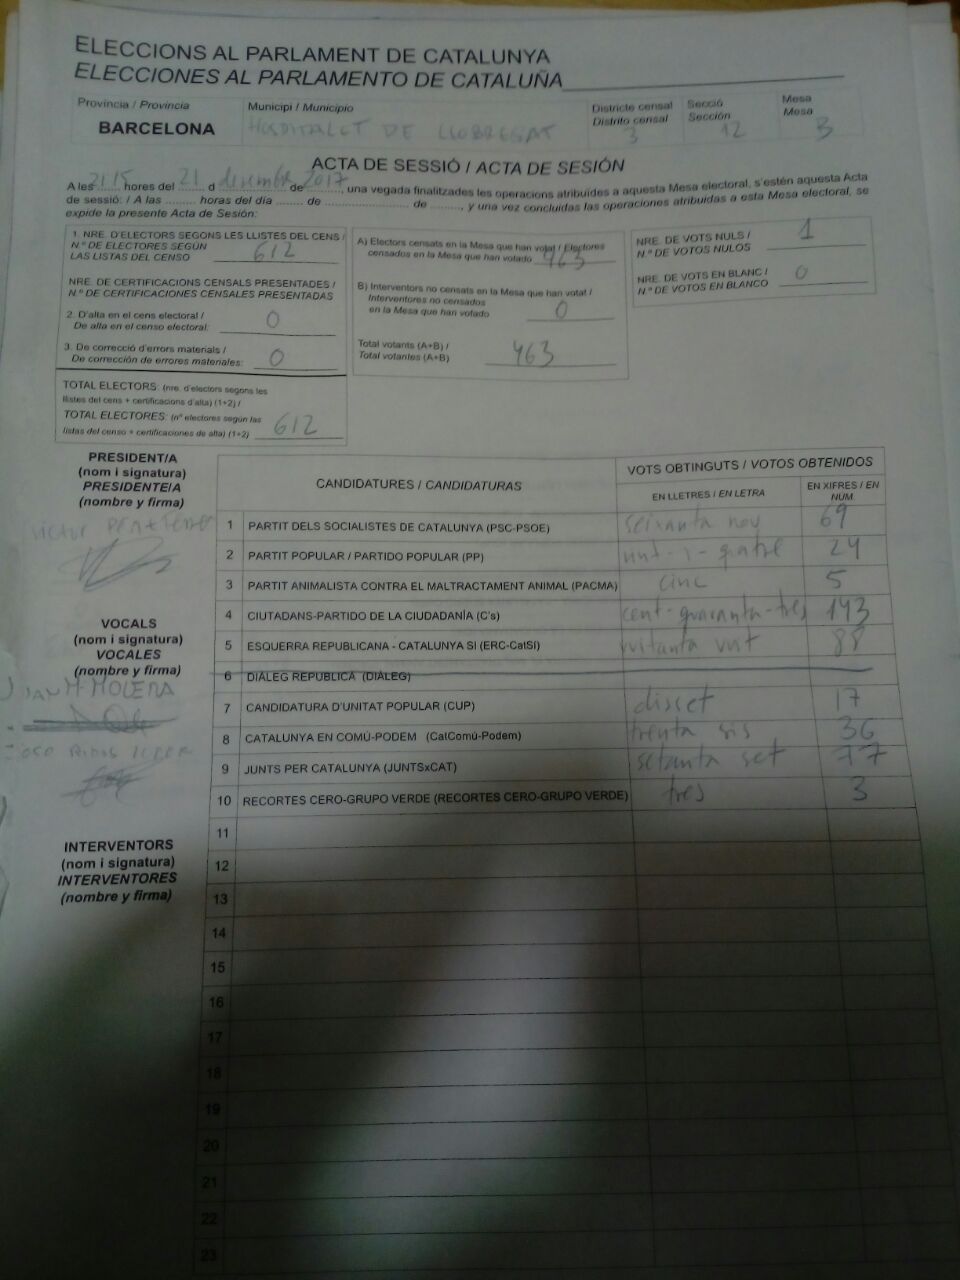 ELECCIONS AL PARLAMENT DE CATALUNYA
ELECCIONES AL PARLAMENTO DE CATALUÑA
Província / Provincia
BARCELONA
Municipi / Municipio
HOSPITALET DE LLOBREGAT
Districte censal
Distrito censal
3
Secció
Sección
12
Mesa
Mesa
B
ACTA DE SESSIÓ / ACTA DE SESIÓN
A les 21:15 hores del 21 d desembre de 2017, una vegada finalitzades les operacions atribuïdes a aquesta Mesa electoral, s'estén aquesta Acta
de sessió: / A las ......... horas del día ........ de ...................... de ........, y una vez concluidas las operaciones atribuidas a esta Mesa electoral, se
expide la presente Acta de Sesión:
1. NRE. D'ELECTORS SEGONS LES LLISTES DEL CENS /
N.º DE ELECTORES SEGÚN
LAS LISTAS DEL CENSO 612
NRE. DE CERTIFICACIONS CENSALS PRESENTADES /
N.º DE CERTIFICACIONES CENSALES PRESENTADAS
2. D'alta en el cens electoral /
De alta en el censo electoral: 0
3. De correcció d'errors materials /
De corrección de errores materiales: 0
TOTAL ELECTORS: (nre. d'electors segons les
llistes del cens + certificacions d'alta) (1+2) /
TOTAL ELECTORES: (nº electores según las
listas del censo + certificaciones de alta) (1+2) 612
A) Electors censats en la Mesa que han votat / Electores
censados en la Mesa que han votado 463
B) Interventors no censats en la Mesa que han votat /
Interventores no censados
en la Mesa que han votado 0
Total votants (A+B) /
Total votantes (A+B) 463
NRE. DE VOTS NULS /
N.º DE VOTOS NULOS 1
NRE. DE VOTS EN BLANC /
N.º DE VOTOS EN BLANCO 0
PRESIDENT/A
(nom i signatura)
PRESIDENTE/A
(nombre y firma)
VOCALS
(nom i signatura)
VOCALES
(nombre y firma)
INTERVENTORS
(nom i signatura)
INTERVENTORES
(nombre y firma)
CANDIDATURES / CANDIDATURAS
VOTS OBTINGUTS / VOTOS OBTENIDOS
EN LLETRES / EN LETRA
EN XIFRES / EN NUM.
1 PARTIT DELS SOCIALISTES DE CATALUNYA (PSC-PSOE) seixanta nou 69
2 PARTIT POPULAR / PARTIDO POPULAR (PP) vint-i-quatre 24
3 PARTIT ANIMALISTA CONTRA EL MALTRACTAMENT ANIMAL (PACMA) cinc 5
4 CIUTADANS-PARTIDO DE LA CIUDADANÍA (C's) cent-quaranta-tres 143
5 ESQUERRA REPUBLICANA - CATALUNYA SI (ERC-CatSí) vuitanta vuit 88
6 DIÀLEG REPUBLICÀ (DIÀLEG)
7 CANDIDATURA D'UNITAT POPULAR (CUP) disset 17
8 CATALUNYA EN COMÚ-PODEM (CatComú-Podem) trenta sis 36
9 JUNTS PER CATALUNYA (JUNTSxCAT) setanta set 77
10 RECORTES CERO-GRUPO VERDE (RECORTES CERO-GRUPO VERDE) tres 3
11
12
13
14
15
16
17
18
19
20
21
22
23